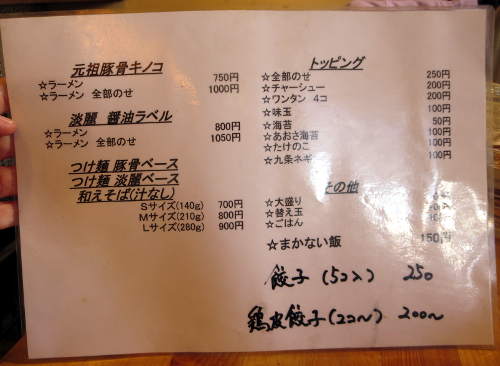 元祖豚骨キノコ
☆ラーメン 750円
☆ラーメン 全部のせ 1000円
淡麗 醤油ラベル
☆ラーメン 800円
☆ラーメン 全部のせ 1050円
つけ麺 豚骨ベース
つけ麺 淡麗ベース
和えそば(汁なし)
Sサイズ(140g) 700円
Mサイズ(210g) 800円
Lサイズ(280g) 900円
トッピング
☆全部のせ 250円
☆チャーシュー 200円
☆ワンタン 4コ 200円
☆味玉 100円
☆海苔 50円
☆あおさ海苔 100円
☆たけのこ 100円
☆九条ネギ 100円
その他
☆大盛り
☆替え玉
☆ごはん
☆まかない飯 150円
餃子 (5コ入) 250
鶏皮餃子 (2コ〜) 200〜